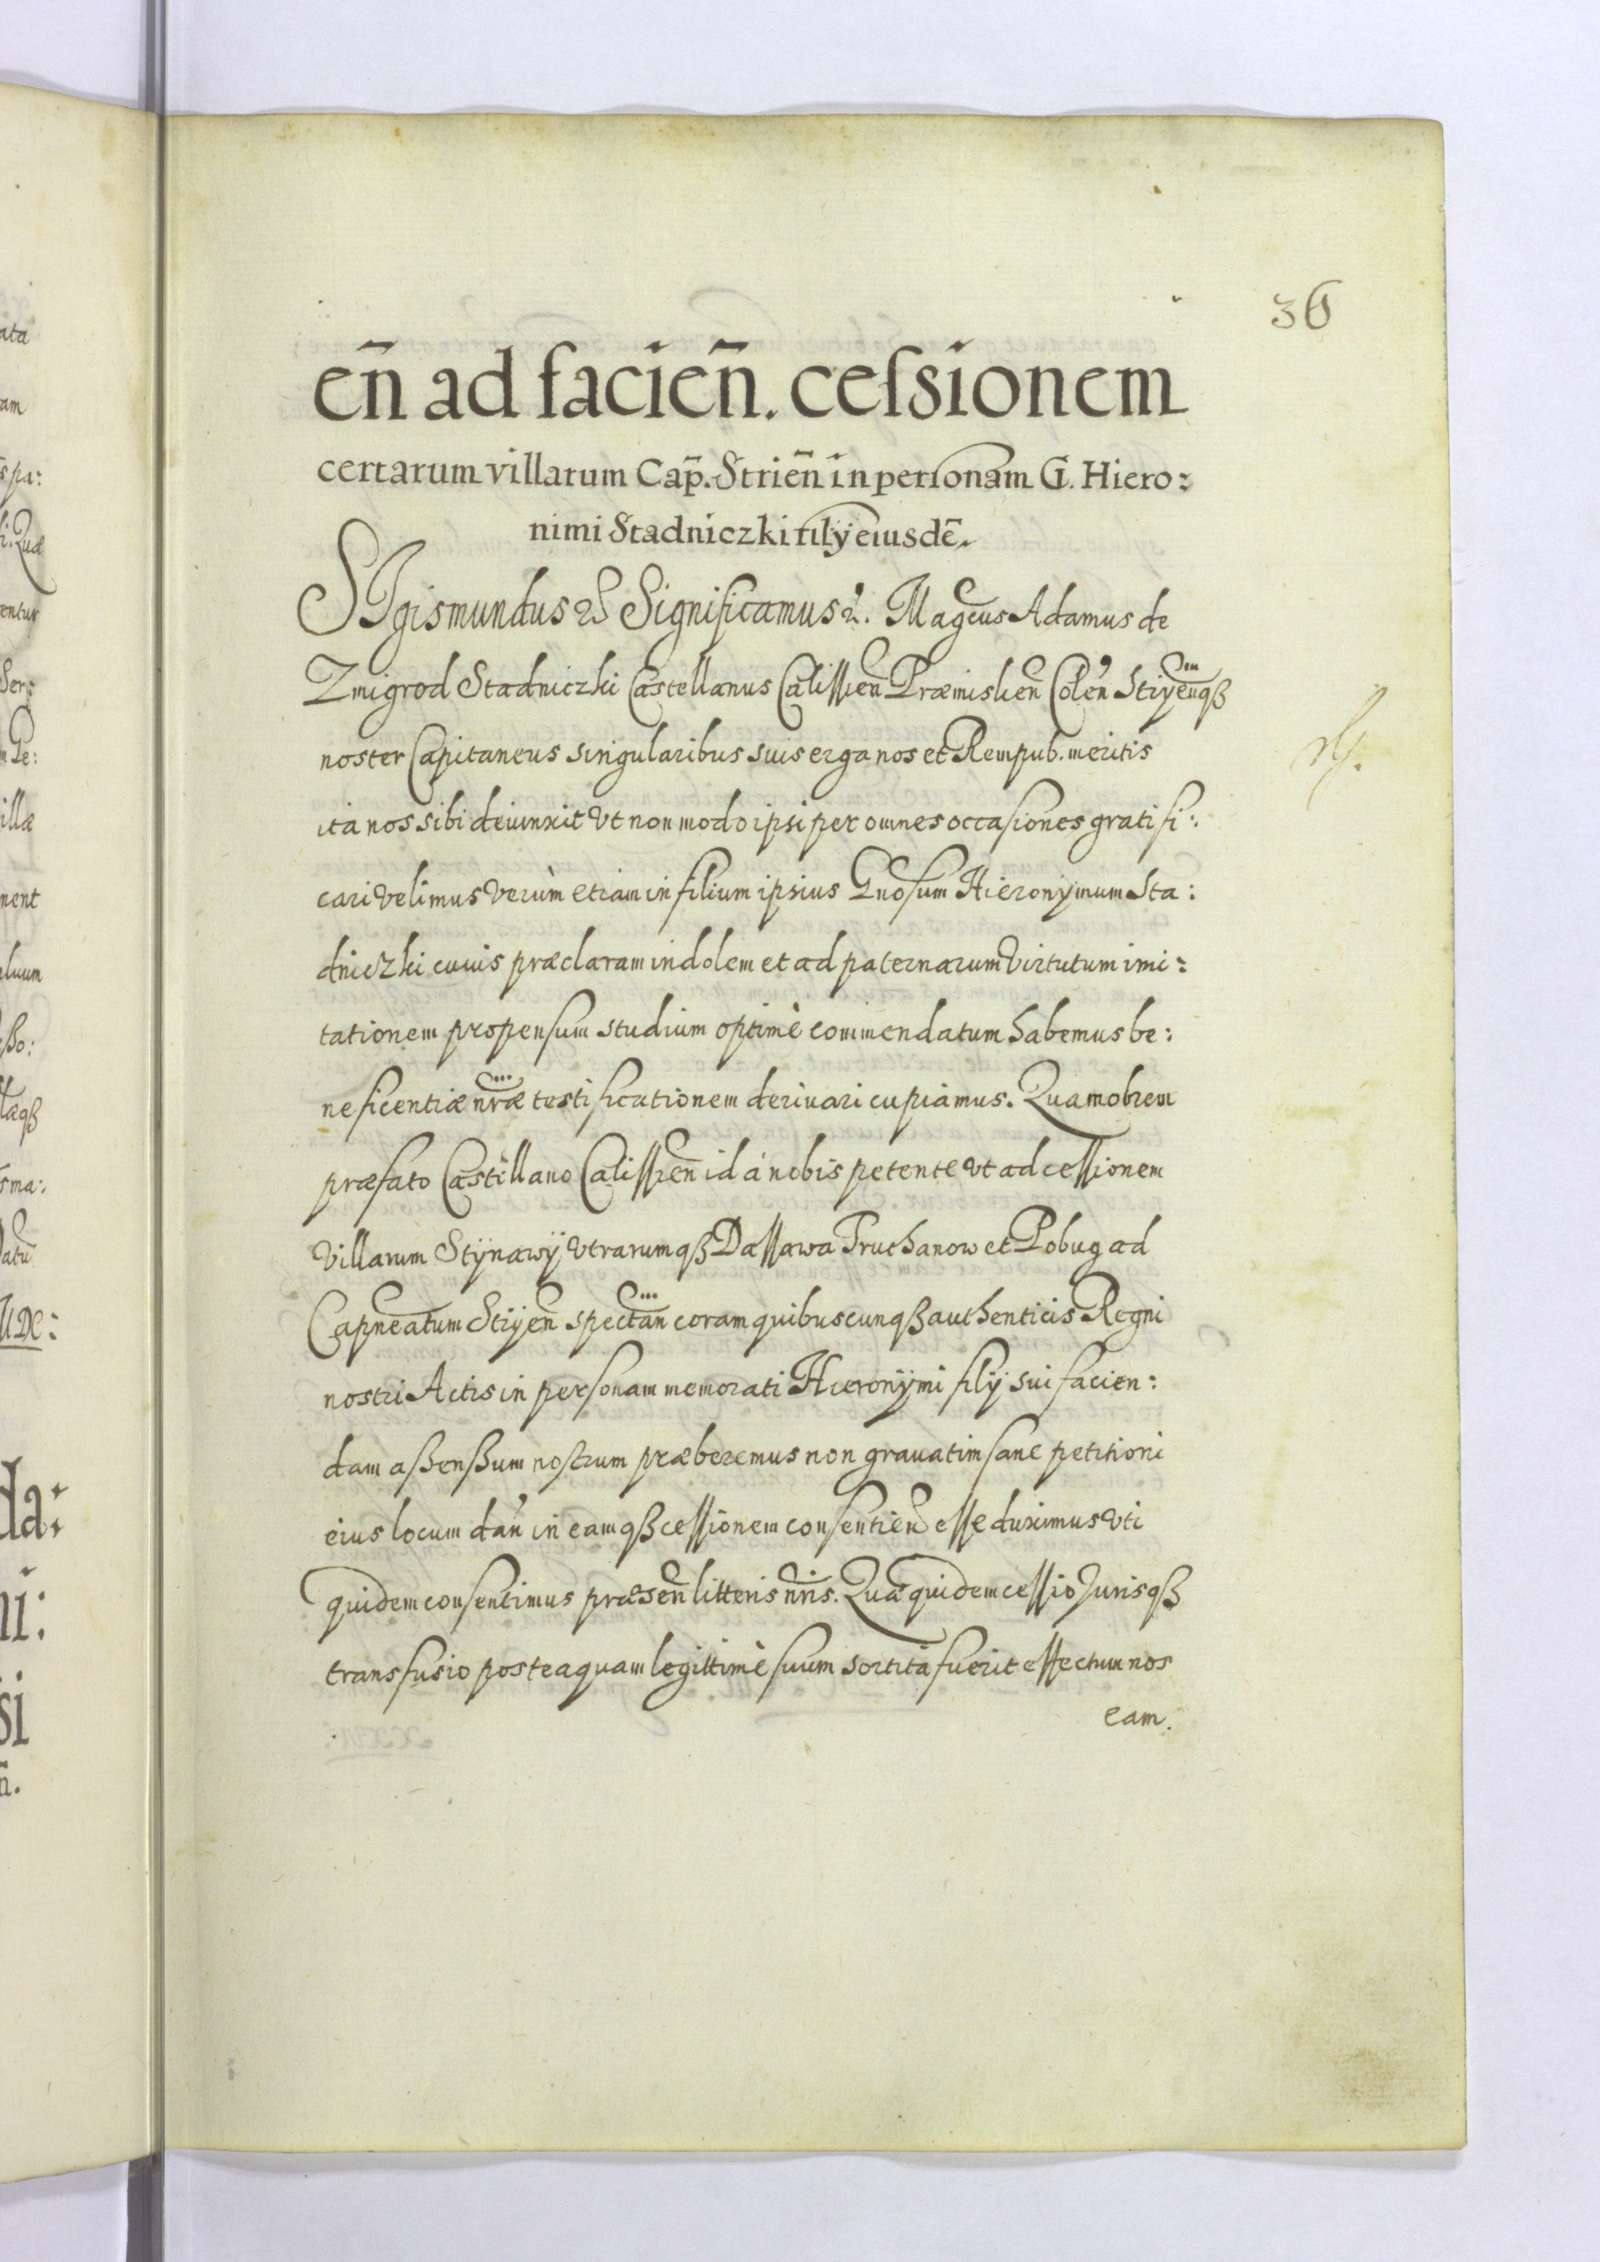 36
en̄ ad facien̄. ceſsionem
certarum villarum Cap̄. Strien̄ in personam G. Hiero:
nimi Stadniczki filÿ eiusdē.
SIgismundus &c Significamus &c. Magcus Adamus de
Zmigrod Stadniczki Castellanus Calißien̄ Præmislien̄ Colen̄ Stryen̄qꝫ
noster Capitaneus singularibus suis erga nos et Rempub. meritis
ita nos sibi deuinxit vt non modo ipsi per omnes occasiones gratifi:
cari velimus verùm etiam in filium ipsius Gnosum Hieronÿmum Sta:
dniczki cuius præclaram indolem et ad paternarum virtutum imi:
tationem propensum studium optimè commendatum habemus be:
neficentiæ nr̄æ testificationem deriuari cupiamus. Quamobrem
præfato Castellano Calißien̄ id à nobis petente vt ad ceſsionem
villarum Stÿnawÿ vtrarumqꝫ Daſsawa Truchanow et Pobug ad
Capn̄eatum Stryen̄ spectan̄ coram quibuscunqꝫ authenticis Regni
nostri Actis in personam memorati Hieronÿmi filÿ sui facien:
dam aßenßum nostrum præberemus non grauatim sane petitioni
eius locum dan̄ in eamqꝫ ceſsionem consentien̄ eſse duximus vti
quidem consentimus præsen̄ litteris nr̄is. Quæ quidem ceſsio Jurisqꝫ
transfusio posteaquam legittimè suum sortita fuerit effectum nos
eam.